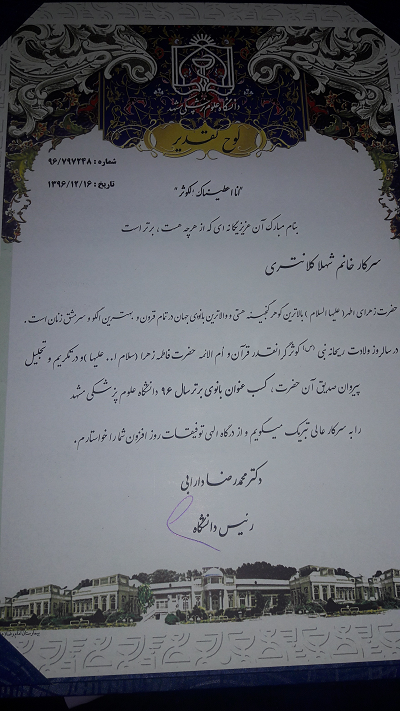 دانشگاه علوم پزشکی مشهد
لوح تقدیر
شماره : ۹۶/۷۹۷۲۴۸
تاریخ : ۱۳۹۶/۱۲/۱۶
"انا اعطیناک الکوثر"
بنام مبارک آن عزیز یگانه ای که از هرچه هست ، برتر است
سرکار خانم شهلا کلانتری
حضرت زهرای اطهر (علیها السلام) بالاترین گوهر گنجینه هستی و والاترین بانوی جهان در تمام قرون و بهترین الگو و سرمشق زنان است .
در سالروز ولادت ریحانه نبی (ص) کوثر گرانقدر قرآن و ام الائمه حضرت فاطمه زهرا (سلام ا... علیها) و در تکریم و تجلیل
پیروان صدیق آن حضرت ، کسب عنوان بانوی برتر سال ۹۶ دانشگاه علوم پزشکی مشهد
را به سرکار عالی تبریک میگویم و از درگاه الهی توفیقات روز افزون شما را خواستارم .
دکتر محمدرضا دارابی
رئیس دانشگاه